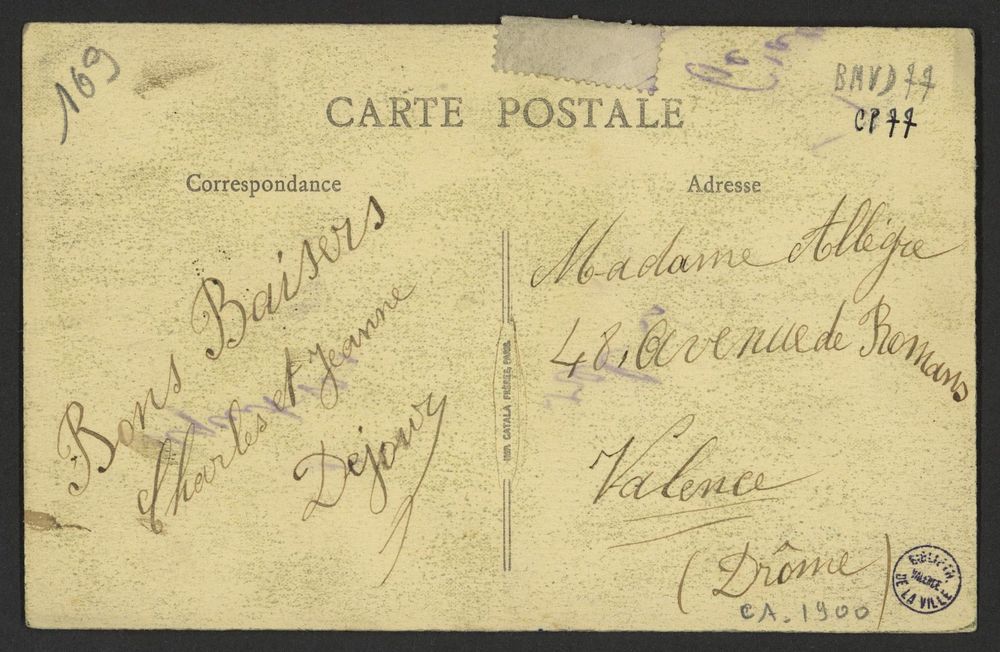 169
BMVD 77
CP 77
CARTE POSTALE
Correspondance
Adresse
Bons Baisers
Charles et Jeanne
Dejoux
IMP. CATALA FRÈRES, PARIS
Madame Allègre
48, avenue de Romans
Valence
(Drôme)
BIBLIOTH
VALENCE
DE LA VILLE
CA. 1900